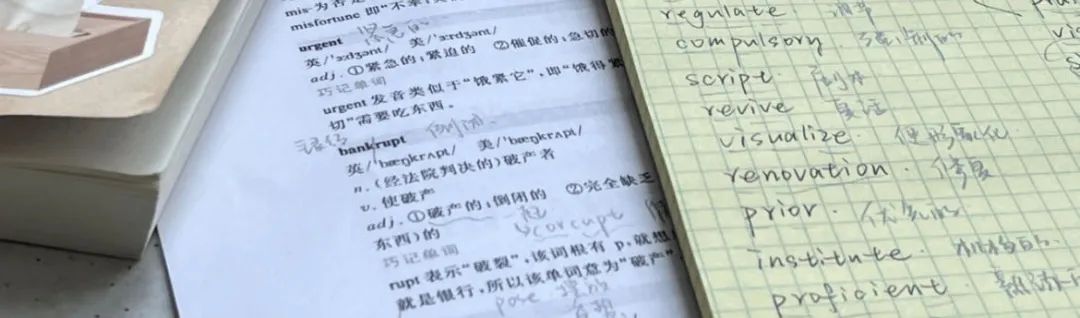 mis-为否
misfortune 即“不幸
urgent
英/'ɜːdʒənt/ 美/'ɜːrdʒənt/
adj. ①紧急的;紧迫的 ②催促的;急切的
巧记单词
urgent 发音类似于“饿紧它”,即“饿得紧
切”需要吃东西。
bankrupt 倒闭
英/'bæŋkrʌpt/ 美/'bæŋkrʌpt/
n. (经法院判决的)破产者
v. 使破产
adj. ①破产的;倒闭的 ②完全缺乏
东西)的
巧记单词
rupt 表示“破裂”,该词根有 p,就想
就是银行,所以该单词意为“破产”
pose
regulate 调节
compulsory 强制的
script 剧本
revive 复活
visualize 使形象化
renovation 修复
prior 优先的
institute 机构
proficient 熟练